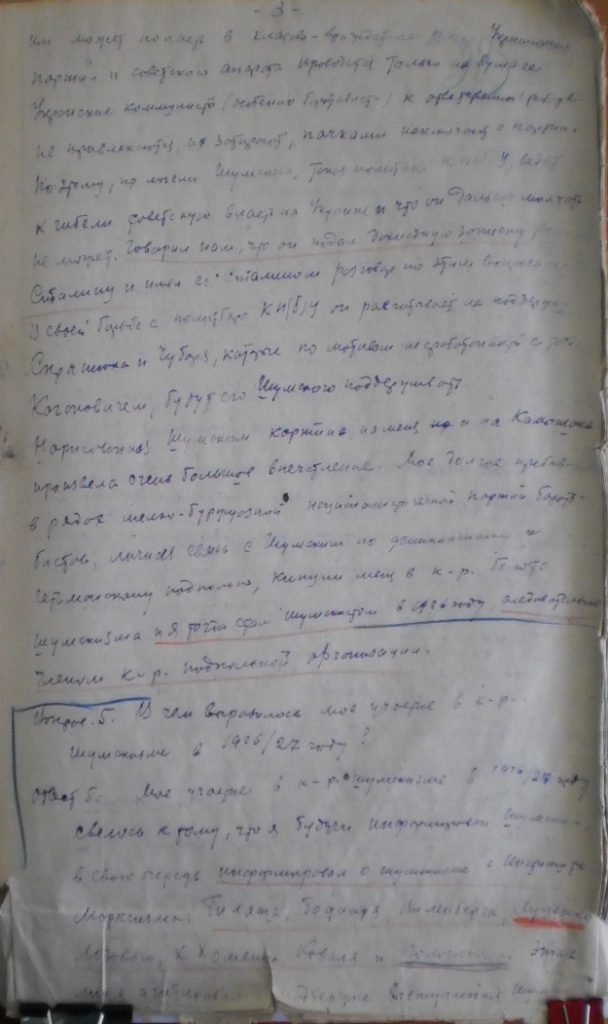 - 3 -
им может попасть в классово-враждебные руки. Украинизация
партии и советского аппарата проводится только на бумаге
Украинские коммунисты (особенно боротьбисты) к ответственной работе
не привлекаются, их затирают, пачками исключают с партии.
По этому, по мысли Шумского, такая политика КП/б/У ведет
к гибели советскую власть на Украине и что он дальше молчать
не может. Говорил нам, что он подал докладную записку
Сталину и имел со Сталиным разговор по этим вопросам.
В своей борьбе с политбюро КП(б)У он расчитывает на поддержку
Скрыпника и Чубаря, которые по мотивам несработанности с
Кагоновичем, будут его Шумского поддерживать
Нарисованная Шумским картина на меня и на
произвела очень большое впечатление. Мое долгое пребывание
в рядах мелко-буржуазной националистической партии борот-
бистов, личная связь с Шумским по деникинскому и
гетманскому подполью, кинули меня в к-р. болото
шумскизма и я тогда стал шумскистом в 1926 году, следовательно
членом к-р. подпольной организации.
Вопрос. 5. В чем выразилось мое участие в к-р.
шумскизме в 1926/27 году?
Ответ 5. Мое участие в к-р шумскизме в 1926/27 году
свелось к тому, что я будучи информирован Шумским
в свою очередь информировал о шумскизме в Институте
Марксизма: Биляша, Боднаря, Биленберга,
Лозового, Х. Хоменко, Коваля и этих